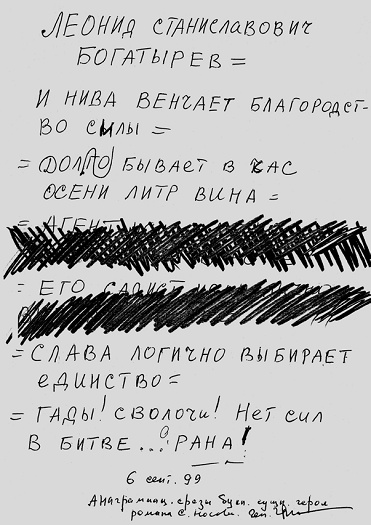 ЛЕОНИД СТАНИСЛАВОВИЧ
БОГАТЫРЕВ =
И НИВА ВЕНЧАЕТ БЛАГОРОДСТ-
ВО СИЛЫ =
= ДОЛГО БЫВАЕТ В ЧАС
ОСЕНИ ЛИТР ВИНА =
= АГЕНТ
= ЕГО
= СЛАВА ЛОГИЧНО ВЫБИРАЕТ
ЕДИНСТВО =
= ГАДЫ! СВОЛОЧИ! НЕТ СИЛ
В БИТВЕ...О РАНА!
6 сент. 99
Анаграммы. фразы букв.
романа С. Носова.